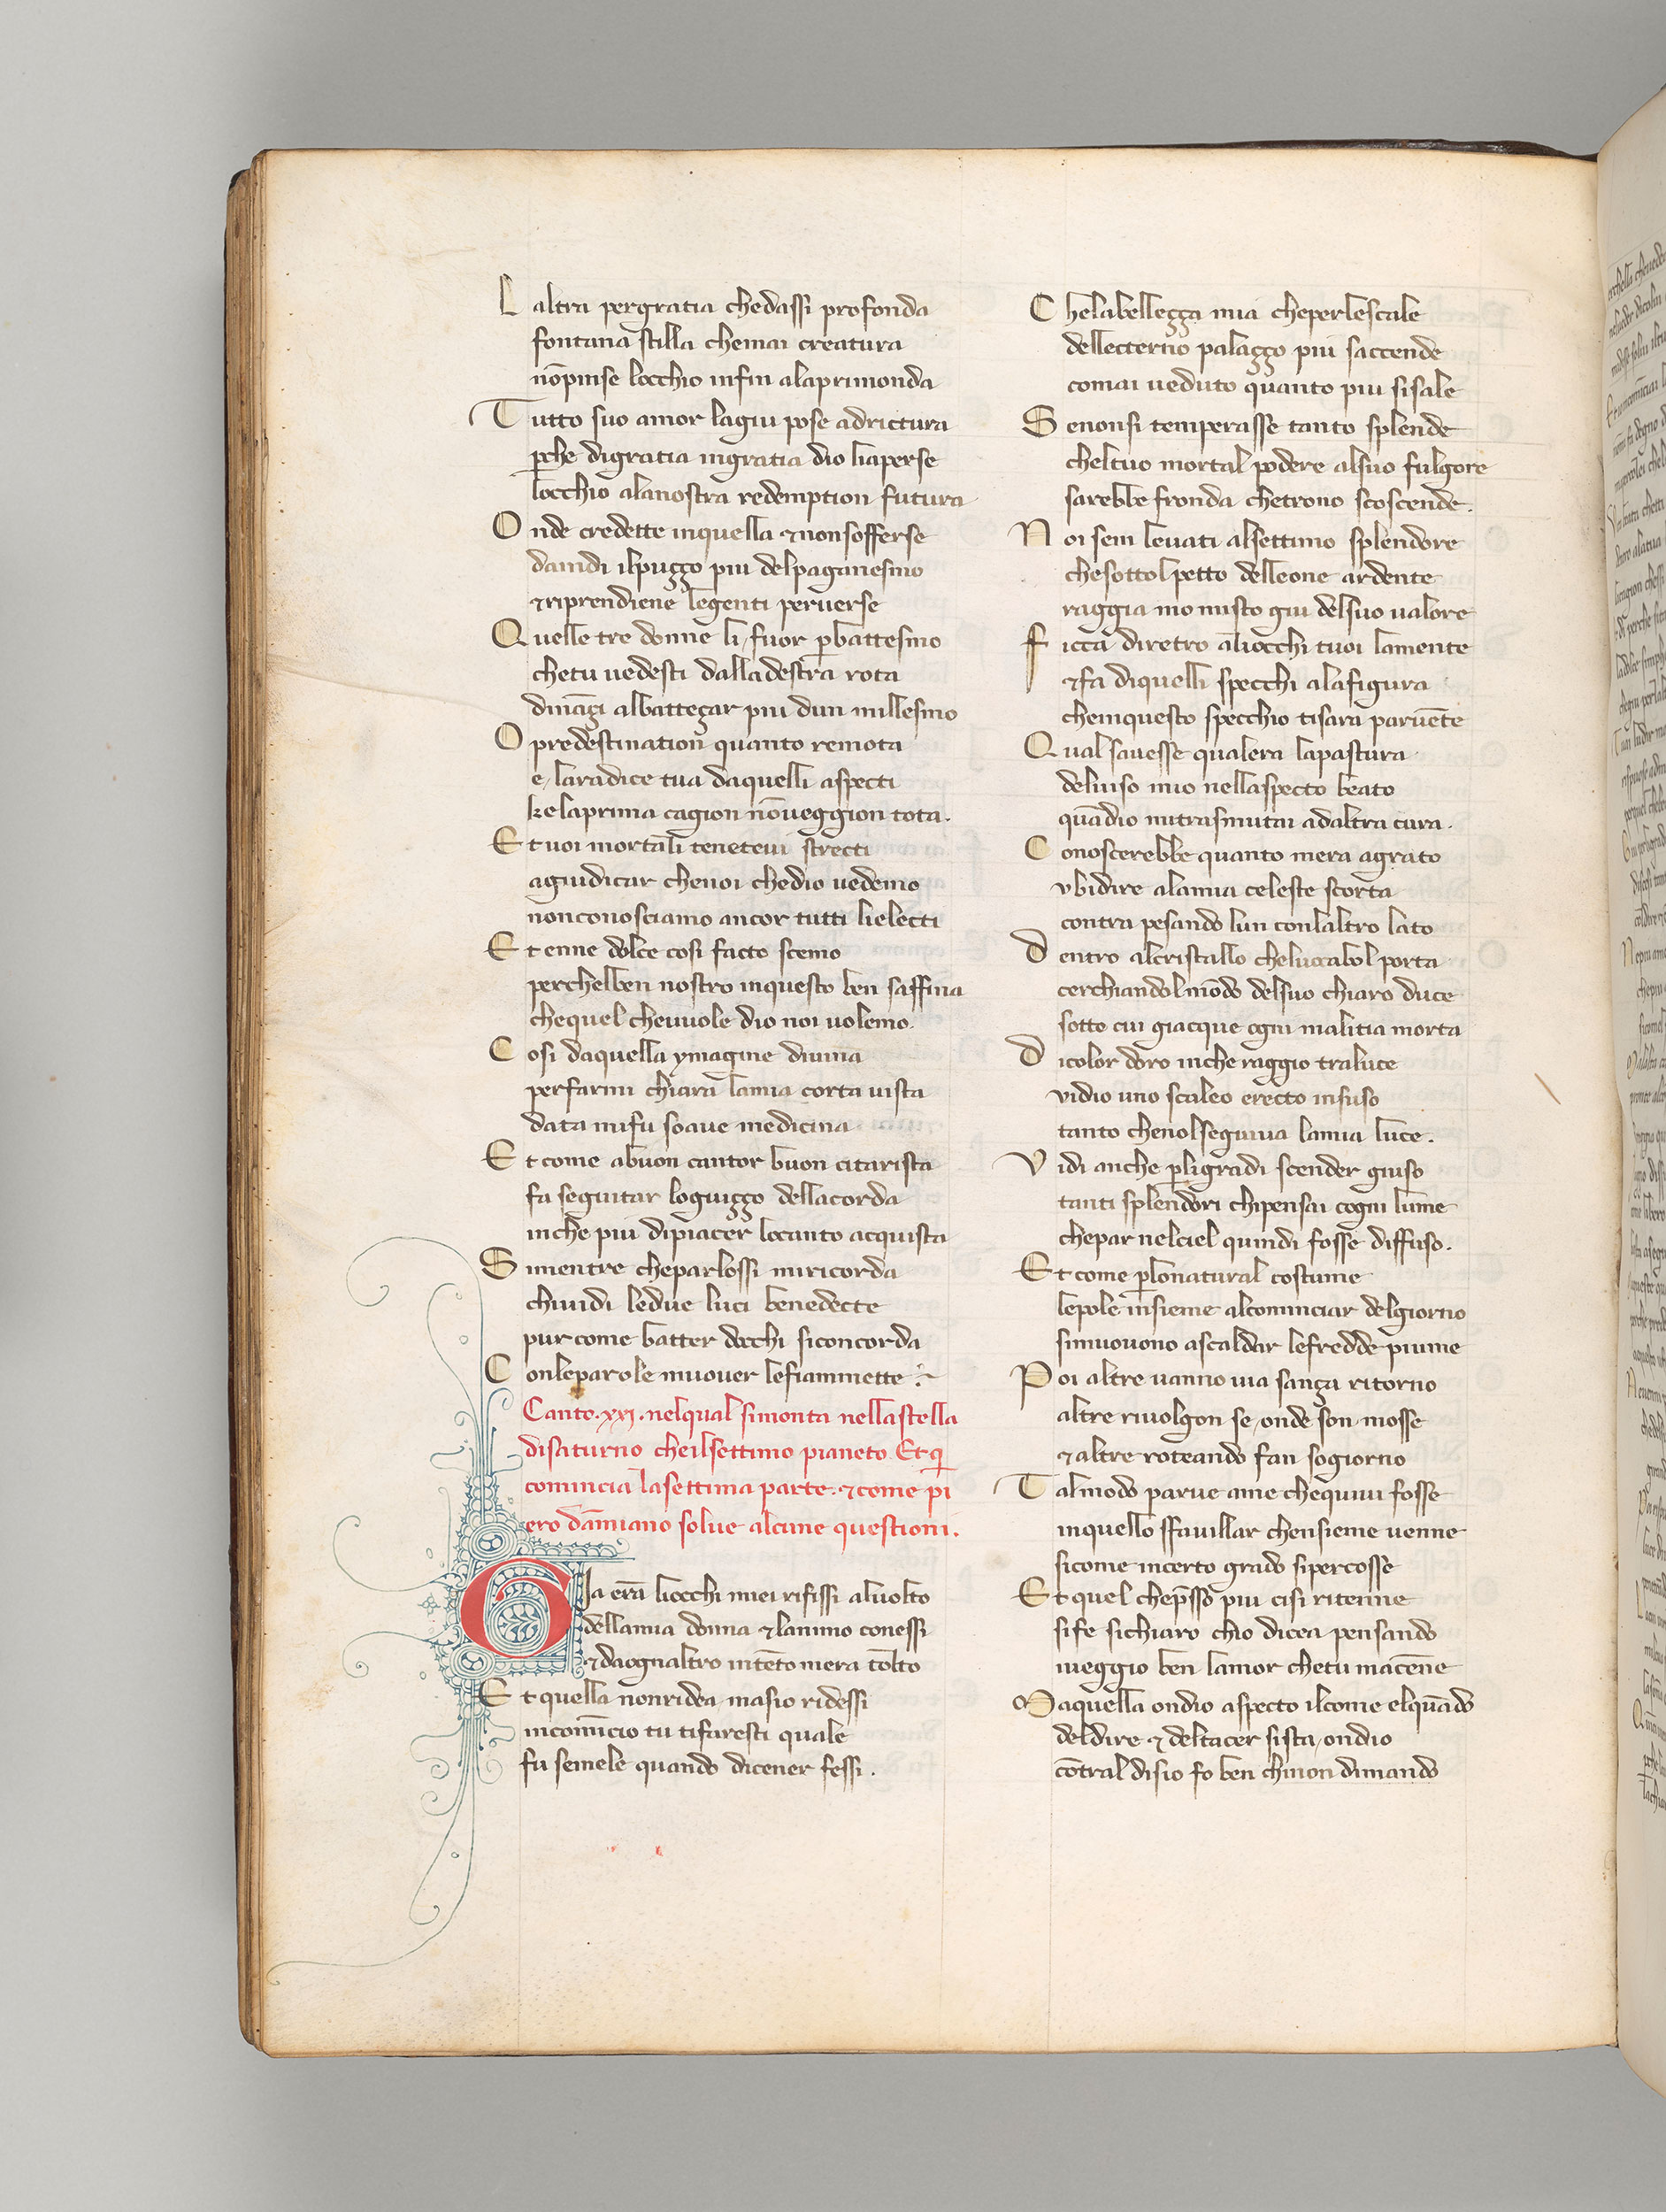 L altra pergratia chedassi profonda
fontana stilla chemai creatura
nōpinse locchio infin alaprimonda
T utto suo amor lagiu pose adrictura
ꝑche digratia ingratia dio liaperse
locchio alanostra redemption futura
O nde credette inquella ⁊nonsofferse
daindi ilpuzzo piu delpaganesmo
⁊riprendiene legenti peruerse
Q uelle tre donne li fuor ꝑbattesmo
chetu uedesti dalladestra rota
dināzi albattezar piu dun millesmo
O predestination quanto remota
e laradice tua daquelli aspecti
ke laprima cagion nōueggion tota.
E t uoi mortali teneteui strecti
agiudicar chenoi chedio uedemo
nonconosciamo ancor tutti lielecti
E t enne dolce cosi facto scemo
perchelben nostro inquesto ben saffina
chequel cheuuole dio noi uolemo.
C osi daquella ymagine diuina
perfarmi chiara lamia corta uista
data mifu soaue medicina
E t come abuon cantor buon citarista
fa seguitar loguizzo dellacorda
inche piu dipiacer locanto acquista
S i mentre cheparlossi miricorda
chiuidi ledue luci benedecte
pur come batter docchi siconcorda
C onleparole muouer lefiammette
Canto .xxj. nelqual simonta nellastella
disaturno cheilsettimo pianeto. Et qi
comincia lasettima parte. ⁊come pi
ero damiano solue alcune questioni.
G ia erā liocchi miei rifissi aluolto
dellamia donna ⁊lanimo conessi
⁊daognaltro intēto mera tolto
E t quella nonridea masio ridessi
incomīcio tu tifaresti quale
fu semele quando dicener fessi.
C helabellezza mia cheperlescale
delletterno palazzo piu saccende
comai ueduto quanto piu sisale
S enonsi temperasse tanto splende
cheltuo mortal podere alsuo fulgore
sarebbe fronda chetrono scoscende.
N oi sem leuati alsettimo splendore
chesottol petto delleone ardente
raggia mo misto giu delsuo ualore
F icca diretro aliocchi tuoi lamente
⁊fa diquelli specchi alafigura
cheinquesto specchio tisara paruēte
Q ual sauesse qualera lapastura
deluiso mio nellaspecto beato
quādio mitrasmutai adaltra cura.
C onoscerebbe quanto mera agrato
vbidire alamia celeste scorta
contra pesando lun conlaltro lato
D entro alcristallo cheluocabol porta
cerchiandol mōdo delsuo chiaro duce
sotto cui giacque ogni malitia morta
D icolor doro inche raggio traluce
vidio uno scaleo erecto insuso
tanto chenolseguiua lamia luce.
V idi anche ꝑligradi scender giuso
tanti splendori chipensai cogni lume
chepar nelciel quindi fosse diffuso.
E t come ꝑlonatural costume
lepole insieme alcominciar delgiorno
simuouono ascaldar lefredde piume
P oi altre uanno uia sanza ritorno
altre riuolgon se onde son mosse
⁊altre roteando fan sogiorno
T almodo parue ame chequiui fosse
inquello sfauillar chensieme uenne
sicome incerto grado sipercosse
E t quel chep̄sso piu cisi ritenne
sife sichiaro chio dicea pensando
iueggio ben lamor chetu macēne
M aquella ondio aspecto ilcome elquādo
deldire ⁊ deltacer sista ondio
cōtral disio fo ben chinon dimando